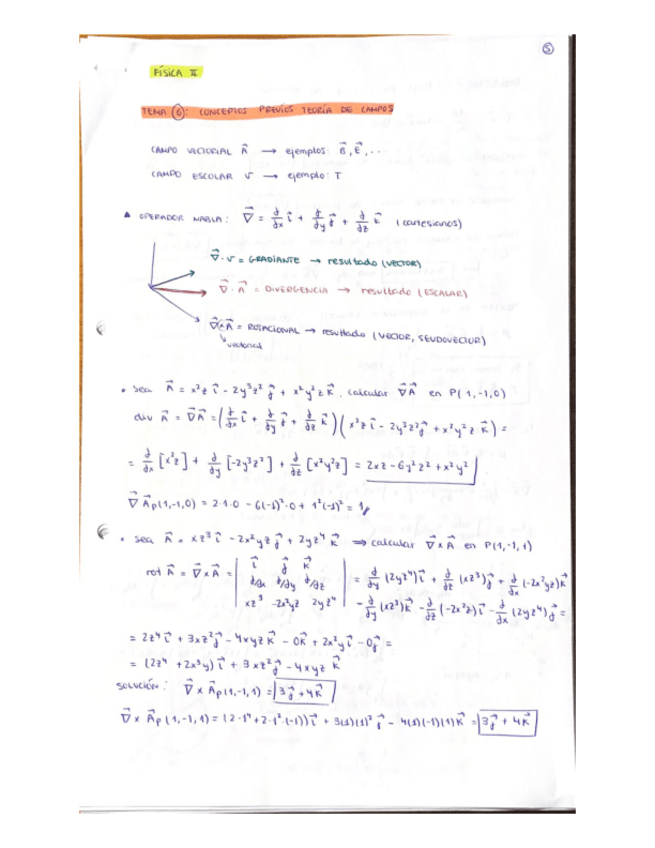 5
FÍSICA II
TEMA 6: CONCEPTOS PREVIOS TEORÍA DE CAMPOS
CAMPO VECTORIAL A⃗ → ejemplos: B⃗, E⃗, ...
CAMPO ESCOLAR v → ejemplo: T
▲ OPERADOR NABLA: ∇⃗ = ∂/∂x i⃗ + ∂/∂y j⃗ + ∂/∂z k⃗ (cartesianos)
∇⃗ · v = GRADIANTE → resultado (VECTOR)
∇⃗ · A⃗ = DIVERGENCIA → resultado (ESCALAR)
∇⃗ × A⃗ = ROTACIONAL → resultado (VECTOR, SEUDOVECTOR)
vectorial
• Sea A⃗ = x²z i⃗ - 2y³z² j⃗ + x²y²z k⃗. calcular ∇⃗A⃗ en P(1,-1,0)
div A⃗ = ∇⃗A⃗ = (∂/∂x i⃗ + ∂/∂y j⃗ + ∂/∂z k⃗)(x²z i⃗ - 2y³z² j⃗ + x²y²z k⃗) =
= ∂/∂x [x²z] + ∂/∂y [-2y³z²] + ∂/∂z [x²y²z] = 2xz - 6y²z² + x²y²
∇⃗ A⃗p(1,-1,0) = 2·1·0 - 6(-1)²·0 + 1²(-1)² = 1
• Sea A⃗ = xz³ i⃗ - 2x²yz j⃗ + 2yz⁴ k⃗ ⇒ calcular ∇⃗ x A⃗ en P(1,-1,1)
rot A⃗ = ∇⃗ x A⃗ = | i⃗ j⃗ k⃗ | = ∂/∂y (2yz⁴) i⃗ + ∂/∂z (xz³) j⃗ + ∂/∂x (-2x²yz) k⃗
| ∂/∂x ∂/∂y ∂/∂z |
| xz³ -2x²yz 2yz⁴ | - ∂/∂y (xz³) k⃗ - ∂/∂z (-2x²z) i⃗ - ∂/∂x (2yz⁴) j⃗ =
= 2z⁴ i⃗ + 3xz² j⃗ - 4xyz k⃗ - 0k⃗ + 2x²y i⃗ - 0j⃗ =
= (2z⁴ + 2x²y) i⃗ + 3xz² j⃗ - 4xyz k⃗
SOLUCIÓN: ∇⃗ x A⃗p(1,-1,1) = 3j⃗ + 4k⃗
∇⃗ x A⃗p(1,-1,1) = (2·1⁴ + 2·1²·(-1)) i⃗ + 3(1)(1)² j⃗ - 4(1)(-1)(1) k⃗ = 3j⃗ + 4k⃗